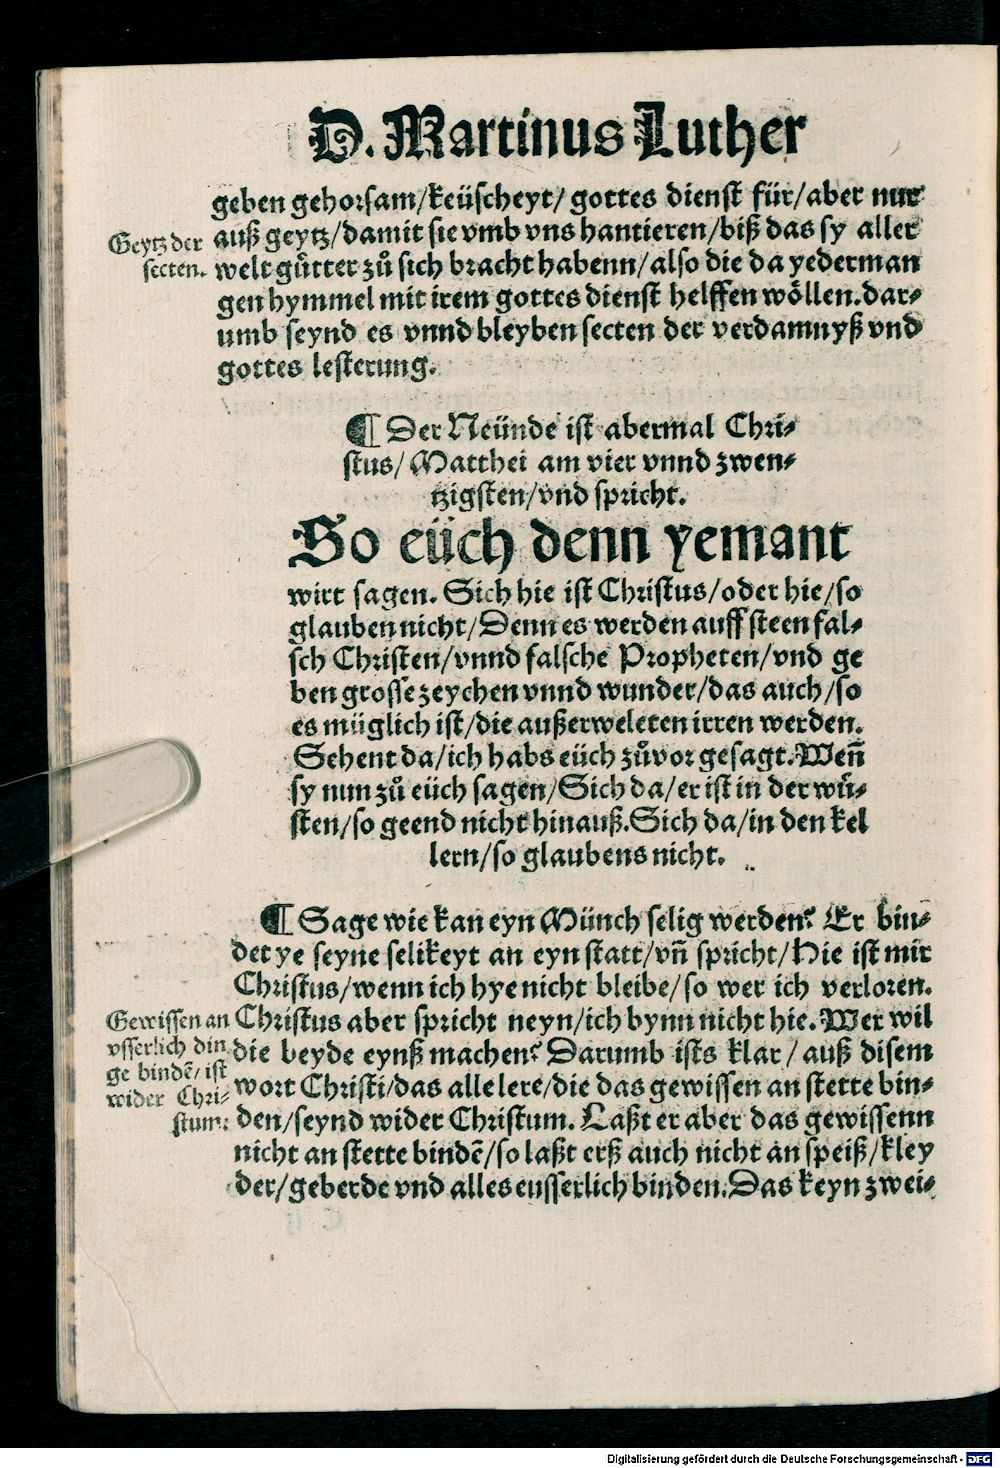 D. Martinus Luther
geben gehorsam/keüscheyt/ gottes dienst für/aber nur
Geytz der
secten.
auß geytz/damit sie vmb vns hantieren/biß das sy aller
welt gůtter zů sich bracht habenn/also die da yederman
gen hymmel mit irem gottes dienst helffen wöllen.dar⸗
umb seynd es vnnd bleyben secten der verdamnyß vnd
gottes lesterung.
¶ Der Neünde ist abermal Chri⸗
stus/ Matthei am vier vnnd zwen⸗
tzigsten/vnd spricht.
So eüch denn yemant
wirt sagen. Sich hie ist Christus/oder hie/so
glauben nicht/Denn es werden auff steen fal⸗
sch Christen/vnnd falsche Propheten/vnd ge
ben grosse zeychen vnnd wunder/das auch/so
es müglich ist/die außerweleten irren werden.
Sehent da/ich habs eüch zůvor gesagt.Weñ
sy nun zů eüch sagen/Sich da/er ist in der wů⸗
sten/so geend nicht hinauß.Sich da/in den kel
lern/so glaubens nicht.
¶ Sage wie kan eyn Münch selig werden? Er bin⸗
det ye seyne selikeyt an eyn statt/vñ spricht/Hie ist mir
Christus/wenn ich hye nicht bleibe/so wer ich verloren.
Gewissen an
vsserlich din
ge bindẽ/ist
wider Chri⸗
stum.
Christus aber spricht neyn/ich bynn nicht hie.Wer wil
die beyde eynß machen? Darumb ists klar/auß disem
wort Christi/das alle lere/die das gewissen an stette bin⸗
den/seynd wider Christum. Laßt er aber das gewissenn
nicht an stette bindẽ/so laßt erß auch nicht an speiß/kley
der/geberde vnd alles eusserlich binden.Das keyn zwei⸗
Digitalisierung gefördert durch die Deutsche Forschungsgemeinschaft - DFG